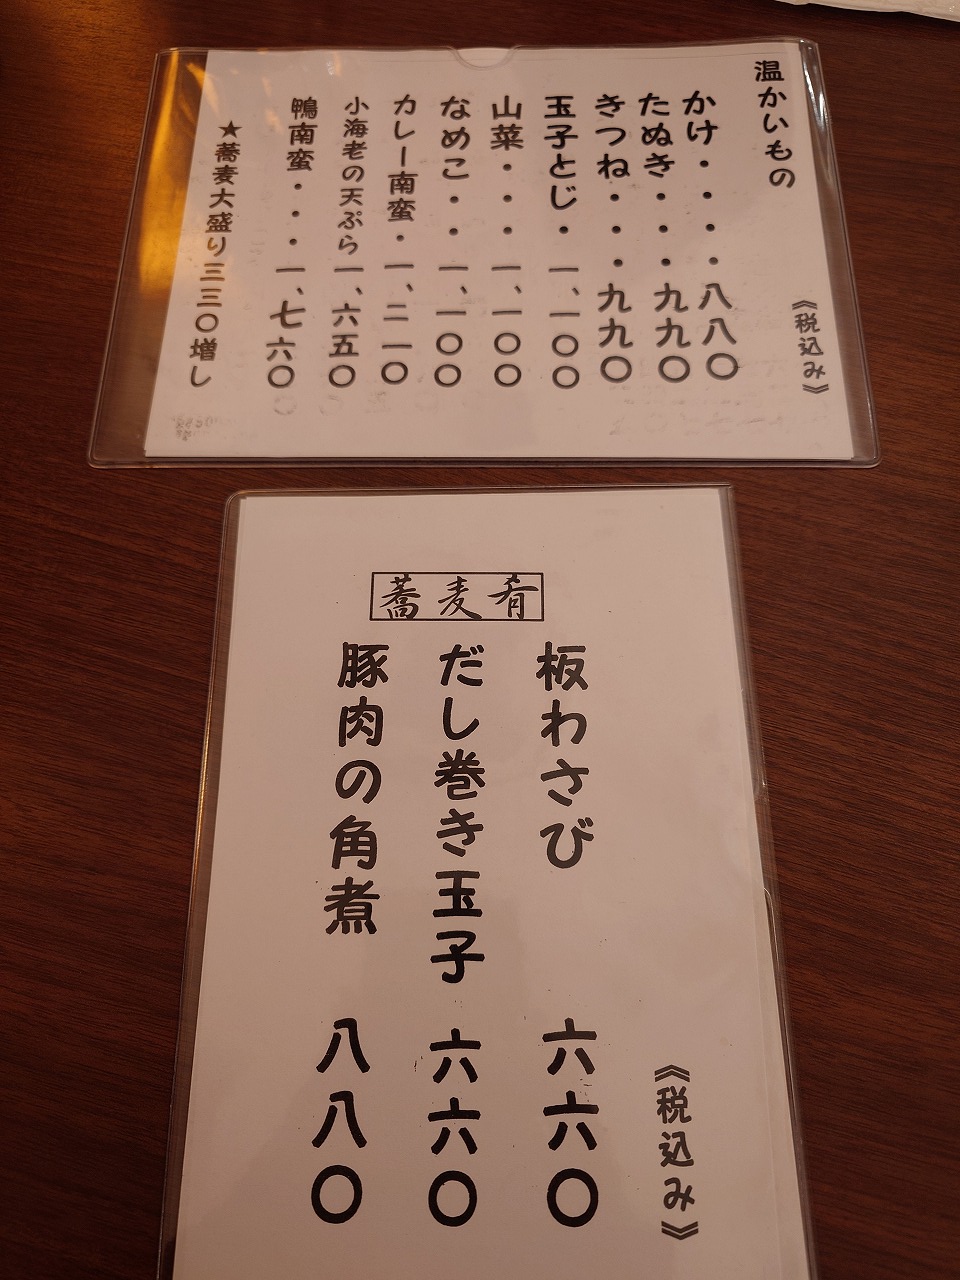 温かいもの
《税込み》
かけ・・・・八八〇
たぬき・・・九九〇
きつね・・・九九〇
玉子とじ・一、一〇〇
山菜・・・一、一〇〇
なめこ・・一、一〇〇
カレー南蛮・一、二一〇
小海老の天ぷら一、六五〇
鴨南蛮・・・一、七六〇
★蕎麦大盛り三三〇増し
蕎麦肴
《税込み》
板わさび 六六〇
だし巻き玉子 六六〇
豚肉の角煮 八八〇